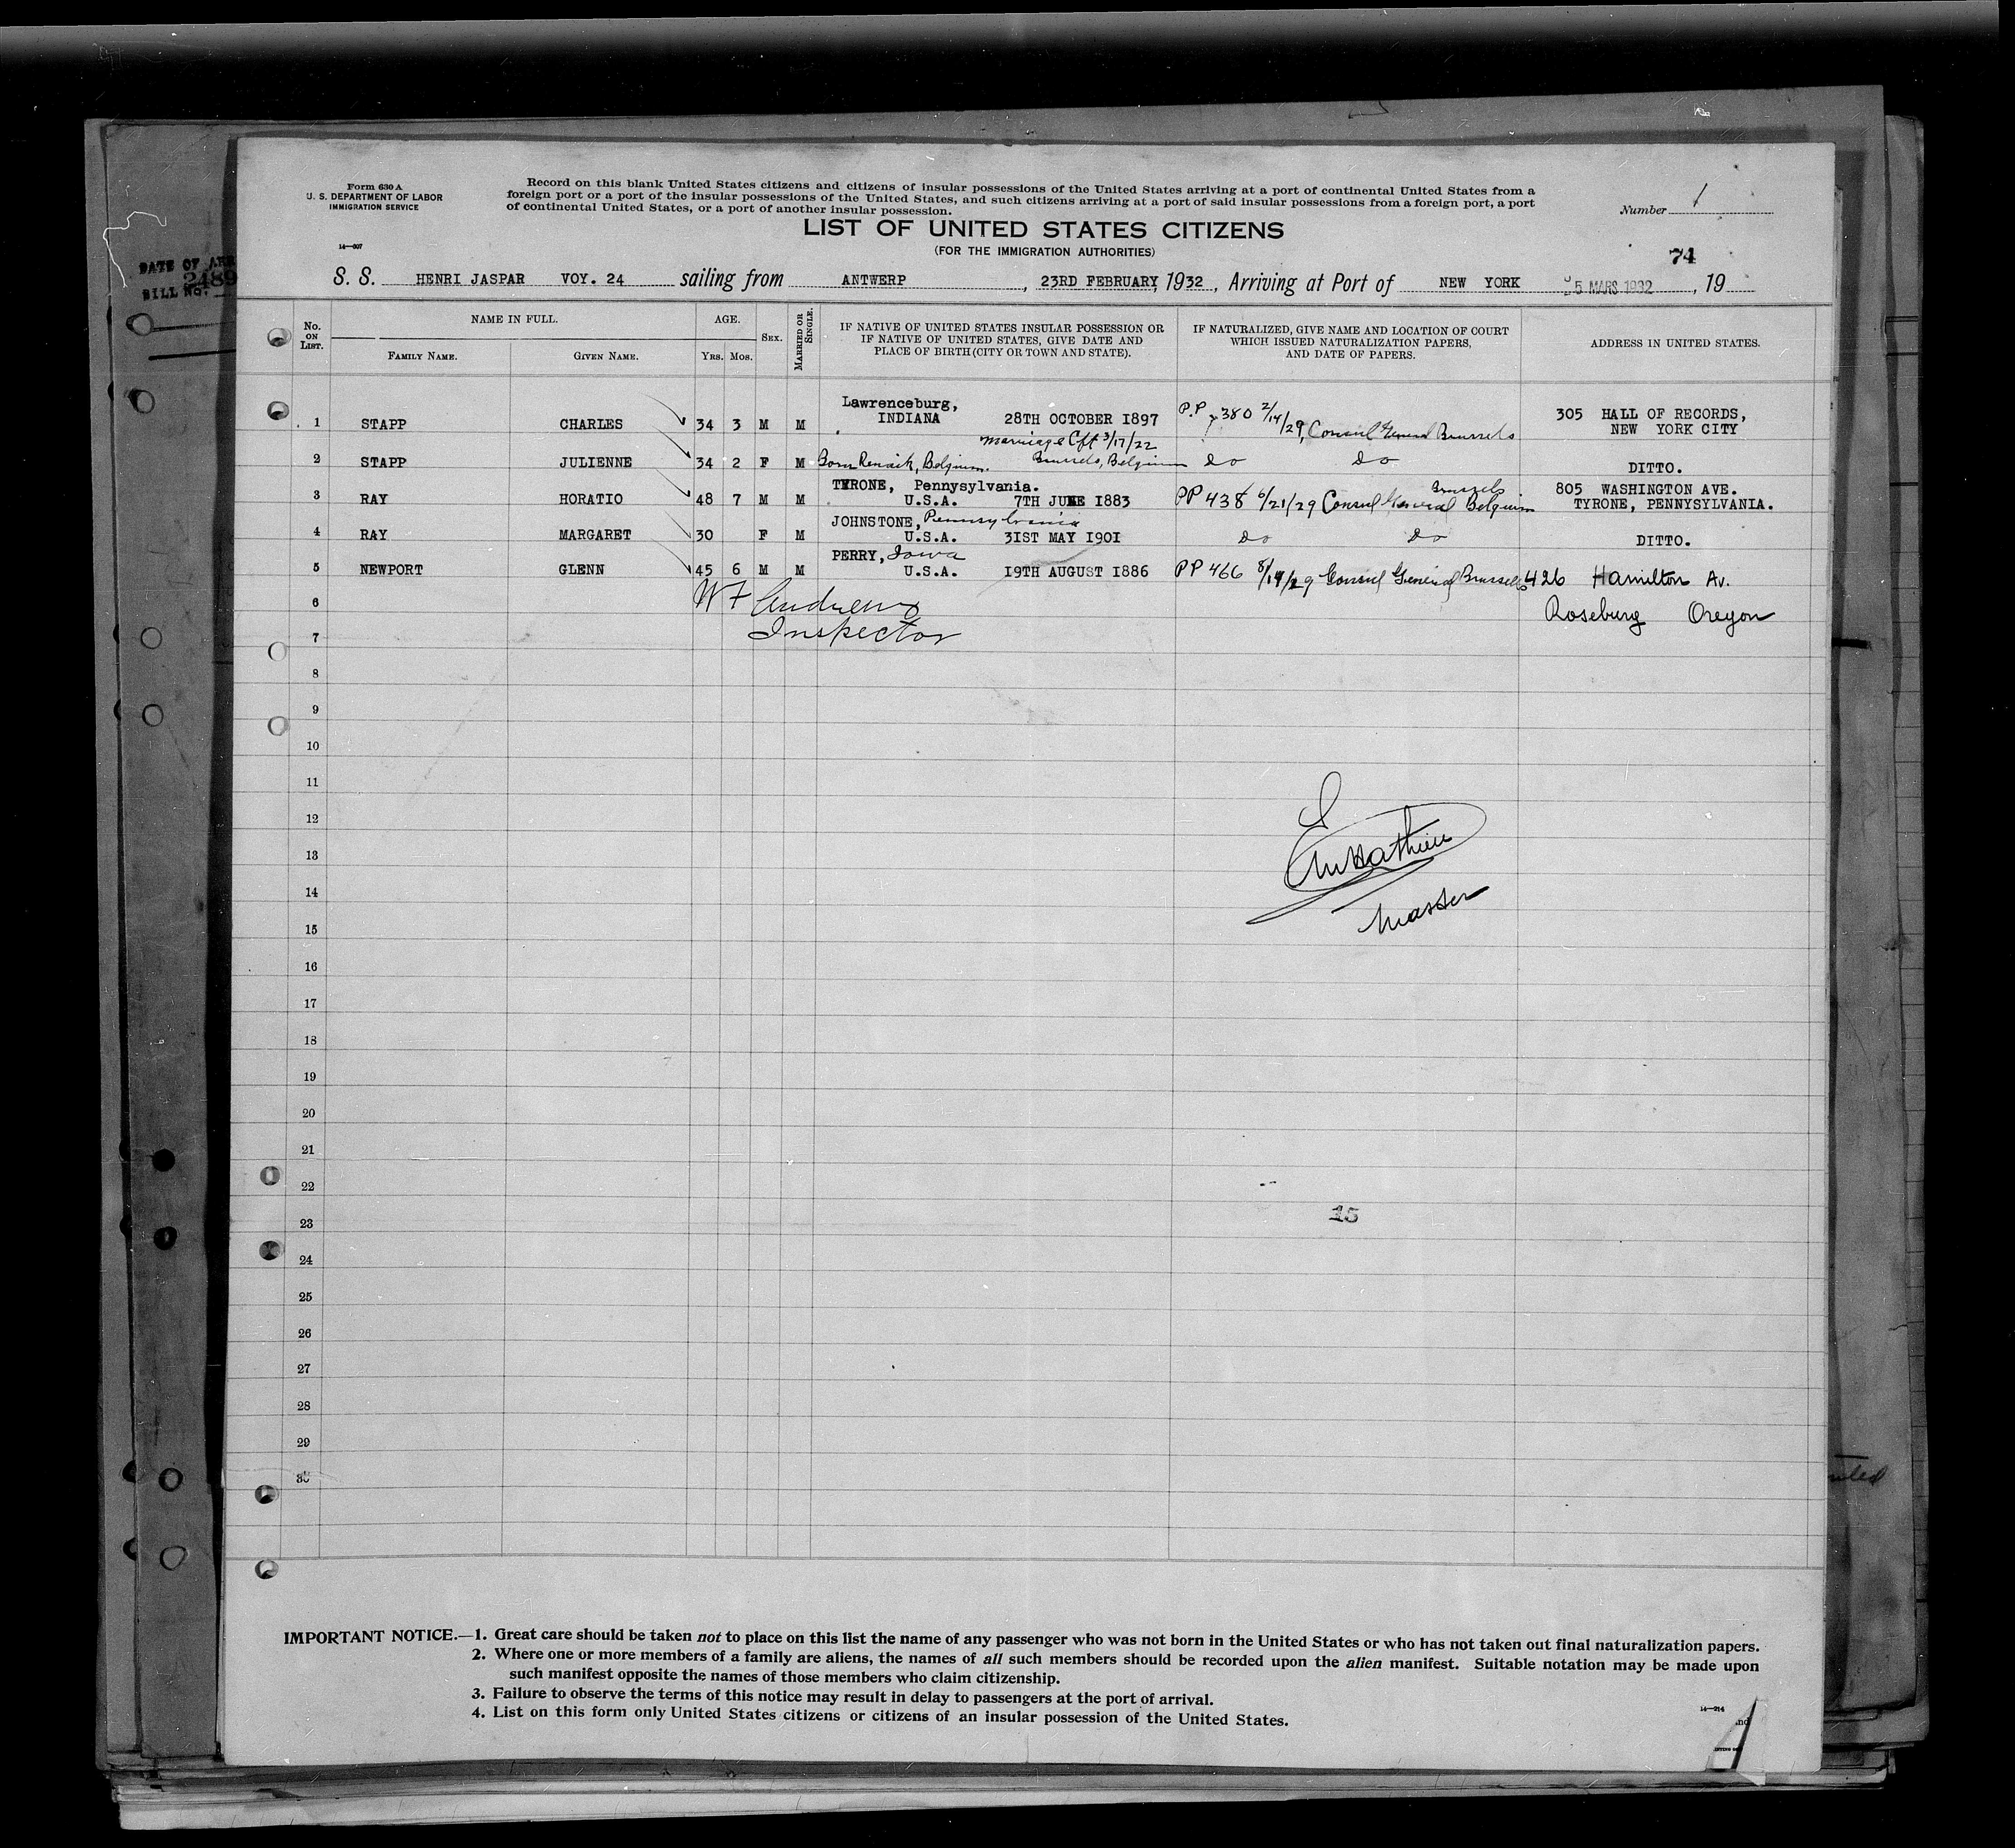 Form 630 A
U. S. DEPARTMENT OF LABOR
IMMIGRATION SERVICE
Record on this blank United States citizens and citizens of insular possessions of the United States arriving at a port of continental United States from a
foreign port or a port of the insular possessions of the United States, and such citizens arriving at a port of said insular possessions from a foreign port, a port
of continental United States, or a port of another insular possession.
Number 1
LIST OF UNITED STATES CITIZENS
(FOR THE IMMIGRATION AUTHORITIES)
14—607
74
DATE OF ARR
2489
BILL No.
S. S. HENRI JASPAR VOY. 24 sailing from ANTWERP, 23RD FEBRUARY, 1932, Arriving at Port of NEW YORK 5 MARS 1932, 19
No. ON LIST.
NAME IN FULL.
FAMILY NAME. GIVEN NAME.
AGE.
YRS. MOS.
SEX.
MARRIED OR SINGLE.
IF NATIVE OF UNITED STATES INSULAR POSSESSION OR
IF NATIVE OF UNITED STATES, GIVE DATE AND
PLACE OF BIRTH (CITY OR TOWN AND STATE).
IF NATURALIZED, GIVE NAME AND LOCATION OF COURT
WHICH ISSUED NATURALIZATION PAPERS,
AND DATE OF PAPERS.
ADDRESS IN UNITED STATES.
1 STAPP CHARLES 34 3 M M Lawrenceburg, INDIANA 28TH OCTOBER 1897 P.P 380 2/14/29, Consul General Brussels 305 HALL OF RECORDS, NEW YORK CITY
2 STAPP JULIENNE 34 2 F M Born Renaix, Belgium. Marriage Cft 3/17/22 Brussels, Belgium do do DITTO.
3 RAY HORATIO 48 7 M M TYRONE, Pennysylvania. U.S.A. 7TH JUNE 1883 PP 438 6/21/29 Consul General Brussels Belgium 805 WASHINGTON AVE. TYRONE, PENNYSYLVANIA.
4 RAY MARGARET 30 F M JOHNSTONE, Pennsylvania U.S.A. 31ST MAY 1901 do do DITTO.
5 NEWPORT GLENN 45 6 M M PERRY, Iowa U.S.A. 19TH AUGUST 1886 PP 466 8/14/29 Consul General Brussels 426 Hamilton Av.
6 W F Andrews Roseburg Oregon
7 Inspector
8
9
10
11
12
13
14
Master
15
16
17
18
19
20
21
22
23 15
24
25
26
27
28
29
30
IMPORTANT NOTICE.—1. Great care should be taken not to place on this list the name of any passenger who was not born in the United States or who has not taken out final naturalization papers.
2. Where one or more members of a family are aliens, the names of all such members should be recorded upon the alien manifest. Suitable notation may be made upon
such manifest opposite the names of those members who claim citizenship.
3. Failure to observe the terms of this notice may result in delay to passengers at the port of arrival.
4. List on this form only United States citizens or citizens of an insular possession of the United States.
14—214